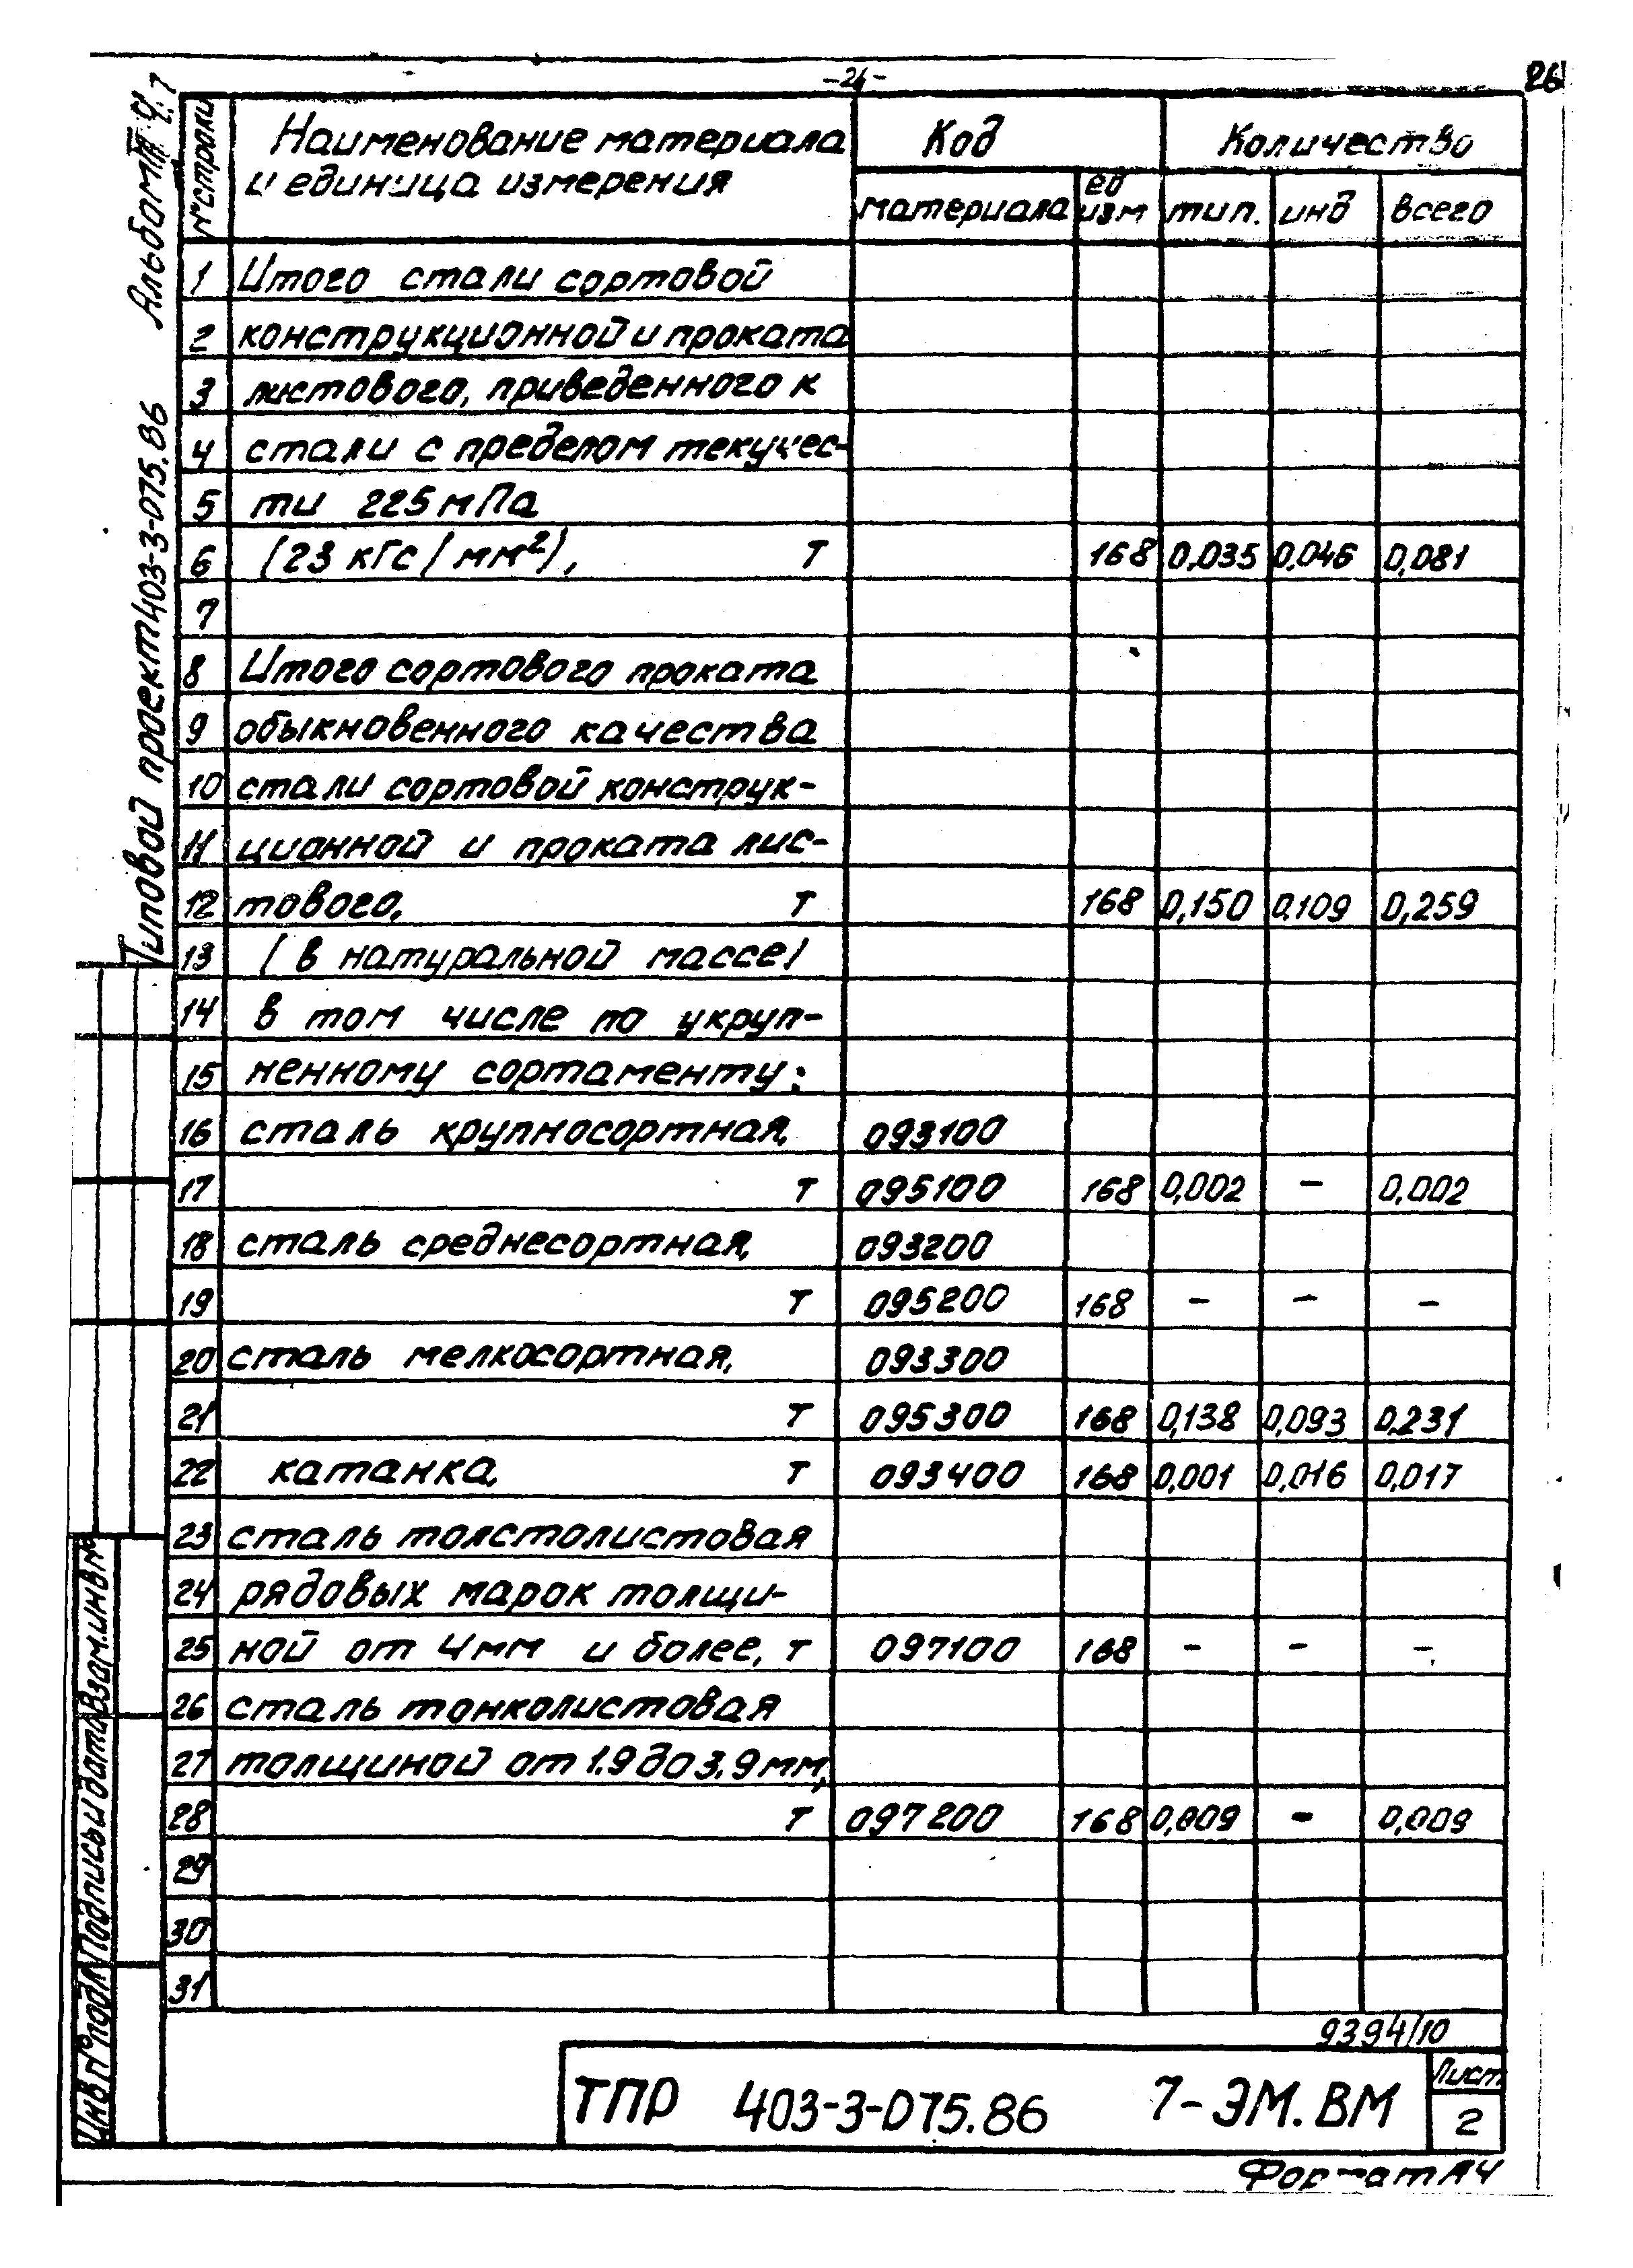 -26-
26
Альбом III ч.7
Типовой проект 403-3-075.86
№ строки
Наименование материала
и единица измерения
Код
Количество
материала
ед
изм
тип.
инд
всего
1 Итого стали сортовой
2 конструкционной и проката
3 листового, приведенного к
4 стали с пределом текучес-
5 ти 225 мПа
6 (23 кГс/мм²), Т 168 0,035 0,046 0,081
7
8 Итого сортового проката
9 обыкновенного качества
10 стали сортовой конструк-
11 ционной и проката лис-
12 тового, т 168 0,150 0.109 0,259
13 (в натуральной массе)
14 в том числе по укруп-
15 ненному сортаменту:
16 сталь крупносортная, 093100
17 т 095100 168 0,002 - 0,002
18 сталь среднесортная, 093200
19 т 095200 168 - - -
20 сталь мелкосортная, 093300
21 т 095300 168 0,138 0,093 0,231
22 катанка, т 093400 168 0,001 0,016 0,017
23 сталь толстолистовая
24 рядовых марок толщи-
25 ной от 4мм и более, т 097100 168 - - -
26 сталь тонколистовая
27 толщиной от 1.9 до 3.9 мм,
28 т 097200 168 0,009 - 0,009
29
30
31
Взам.инв.№
Подпись и дата
Инв № подл
9394/10
ТПР 403-3-075.86 7-ЭМ.ВМ
Лист
2
Формат А4